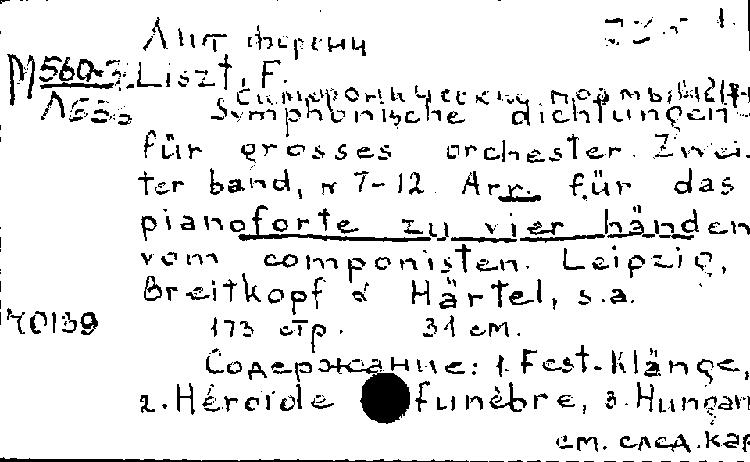 Лист Ференц
М560-3 Liszt, F.
Симфонические поэмы
Л635 Symphonische dichtungen
für grosses orchester. Zwei-
ter band, n 7-12. Arr. für das
pianoforte zu vier händen
vom componisten. Leipzig,
Breitkopf & Härtel, s.a.
70139 173 стр. 31 см.
Содержание: 1. Fest-Klänge,
2. Héroïde funèbre, 3. Hungar
см. след. кар